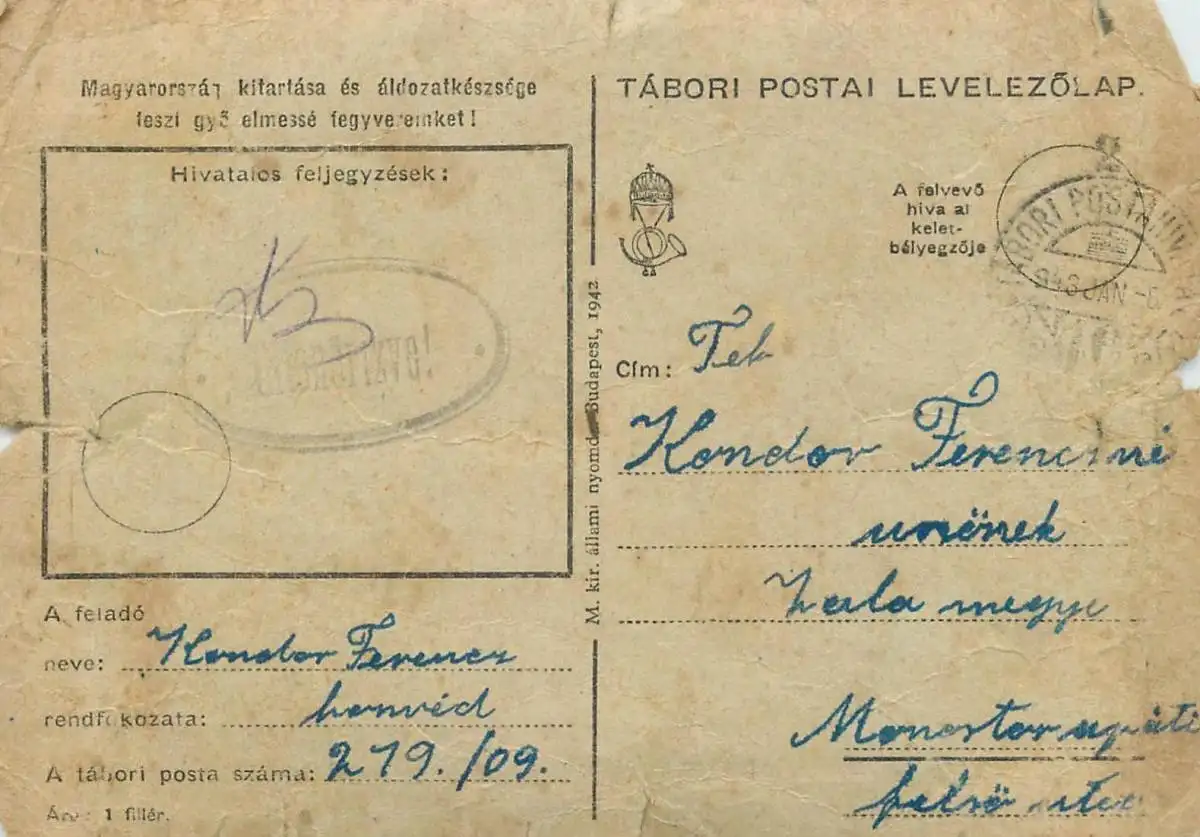 Magyarország kitartása és áldozatkészsége
teszi győzelmessé fegyvereinket!
Hivatalos feljegyzések:
A feladó
neve: Kondor Ferencz
rendfokozata: honvéd
A tábori posta száma: 219./09.
Ára: 1 fillér.
M. kir. állami nyomda, Budapest, 1942
TÁBORI POSTAI LEVELEZŐLAP.
A felvevő
hivatal
kelet-
bélyegzője
TÁBORI POSTAHIV
943 JAN -6
Cím: Tek
Kondor Ferencné
urnőnek
Zala megye
felső utca